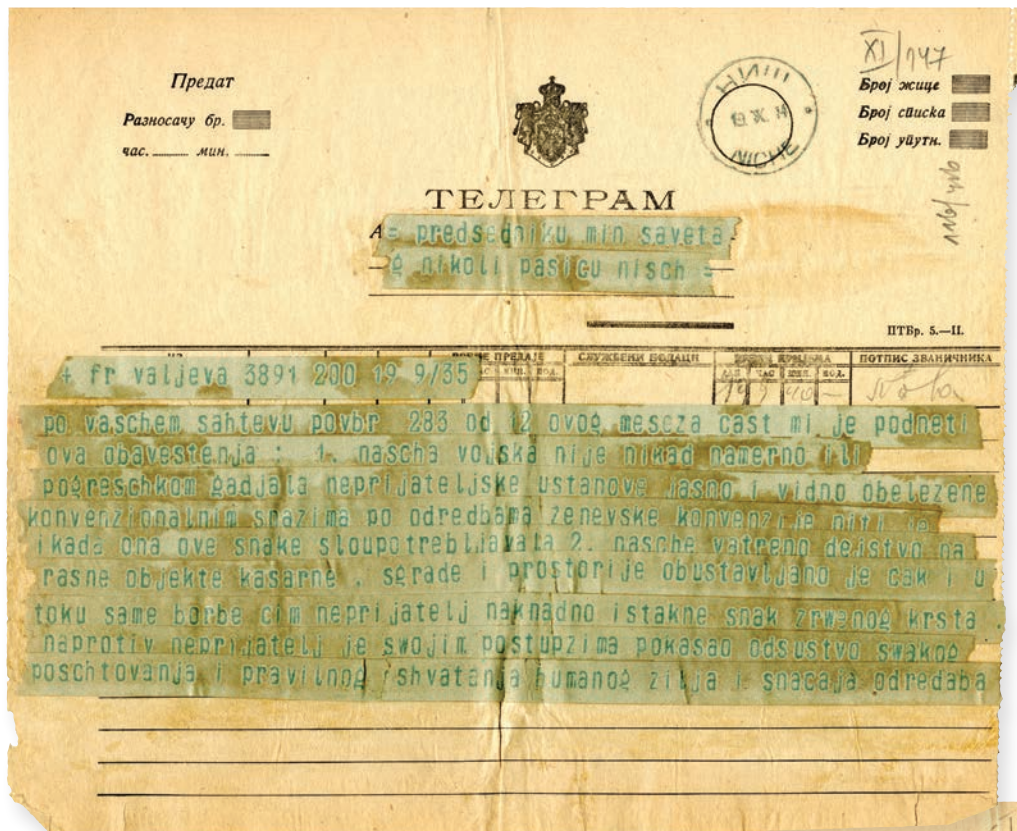 XI/147
Предат
Разносачу бр.
час. мин.
НИШ
19. X. 14
NICHE
Број жице
Број списка
Број упутн.
116/406
ТЕЛЕГРАМ
= predsedniku min saveta
g nikoli pasicu nisch =
ПТБр. 5.—II.
ПРЕДАЈЕ СЛУЖБЕНИ ПОДАЦИ ПОТПИС ЗВАНИЧНИКА
ЧАС МИН. ПОД. ДАН ЧАС МИН. ПОД.
+ fr valjeva 3891 200 19 9/35
po vaschem sahtevu povbr 283 od 12 ovog mescza cast mi je podneti
ova obavestenja : 1. nascha vojska nije nikad namerno ili
pogreschkom gadjala neprijateljske ustanove jasno i vidno obelezene
konvenzionalnim snazima po odredbama zenevske konvenzije niti je
ikada ona ove snake sloupotrebljavala 2. nasche vatreno dejstvo na
rasne objekte kasarne , sgrade i prostorije obustavljano je cak i u
toku same borbe cim neprijatelj naknadno istakne snak zrwenog krsta .
naprotiv neprijatelj je swojim postupzima pokasao odsustvo swakog
poschtovanja i pravilnog shvatanja humanog zilja i snacaja odredaba